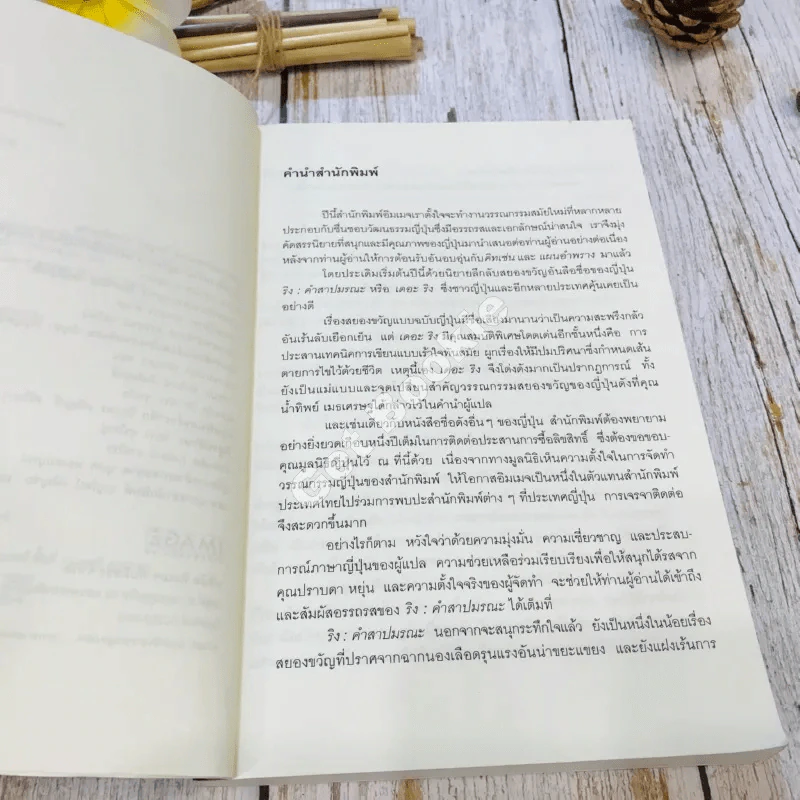 คำนำสำนักพิมพ์
ปีนี้สำนักพิมพ์อิมเมจเราตั้งใจจะทำงานวรรณกรรมสมัยใหม่ที่หลากหลาย
ประกอบกับชื่นชอบวัฒนธรรมญี่ปุ่นซึ่งมีอรรถรสและเอกลักษณ์น่าสนใจ เราจึงมุ่ง
คัดสรรนิยายที่สนุกและมีคุณภาพของญี่ปุ่นมานำเสนอต่อท่านผู้อ่านอย่างต่อเนื่อง
หลังจากท่านผู้อ่านให้การต้อนรับอันอบอุ่นกับคิทเช่น และ แผนอำพราง มาแล้ว
โดยประเดิมเริ่มต้นปีนี้ด้วยนิยายลึกลับสยองขวัญอันลือชื่อของญี่ปุ่น
ริง : คำสาปมรณะ หรือ เดอะ ริง ซึ่งชาวญี่ปุ่นและอีกหลายประเทศคุ้นเคยเป็น
อย่างดี
เรื่องสยองขวัญแบบฉบับญี่ปุ่นมีชื่อเสียงมานานว่าเป็นความสะพรึงกลัว
อันเร้นลับเยือกเย็น แต่ เดอะ ริง มีคุณสมบัติพิเศษโดดเด่นอีกชั้นหนึ่งคือ การ
ประสานเทคนิคการเขียนแบบเร้าใจทันสมัย ผูกเรื่องให้มีปมปริศนาซึ่งกำหนดเส้น
ตายการไขไว้ด้วยชีวิต เหตุนี้เอง เดอะ ริง จึงโด่งดังมากเป็นปรากฏการณ์ ทั้ง
ยังเป็นแม่แบบและจุดเปลี่ยนสำคัญวรรณกรรมสยองขวัญของญี่ปุ่นดังที่คุณ
น้ำทิพย์ เมธเศรษฐ ได้กล่าวไว้ในคำนำผู้แปล
และเช่นเดียวกับหนังสือชื่อดังอื่นๆ ของญี่ปุ่น สำนักพิมพ์ต้องพยายาม
อย่างยิ่งยวดเกือบหนึ่งปีเต็มในการติดต่อประสานการซื้อลิขสิทธิ์ ซึ่งต้องขอขอบ
คุณมูลนิธิญี่ปุ่นไว้ ณ ที่นี้ด้วย เนื่องจากทางมูลนิธิเห็นความตั้งใจในการจัดทำ
วรรณกรรมญี่ปุ่นของสำนักพิมพ์ ให้โอกาสอิมเมจเป็นหนึ่งในตัวแทนสำนักพิมพ์
ประเทศไทยไปร่วมการพบปะสำนักพิมพ์ต่าง ๆ ที่ประเทศญี่ปุ่น การเจรจาติดต่อ
จึงสะดวกขึ้นมาก
อย่างไรก็ตาม หวังใจว่าด้วยความมุ่งมั่น ความเชี่ยวชาญ และประสบ-
การณ์ภาษาญี่ปุ่นของผู้แปล ความช่วยเหลือร่วมเรียบเรียงเพื่อให้สนุกได้รสจาก
คุณปราบดา หยุ่น และความตั้งใจจริงของผู้จัดทำ จะช่วยให้ท่านผู้อ่านได้เข้าถึง
และสัมผัสอรรถรสของ ริง : คำสาปมรณะ ได้เต็มที่
ริง : คำสาปมรณะ นอกจากจะสนุกระทึกใจแล้ว ยังเป็นหนึ่งในน้อยเรื่อง
สยองขวัญที่ปราศจากฉากนองเลือดรุนแรงอันน่าขยะแขยง และยังแฝงเร้นการ
Get Bookie
IMAGE